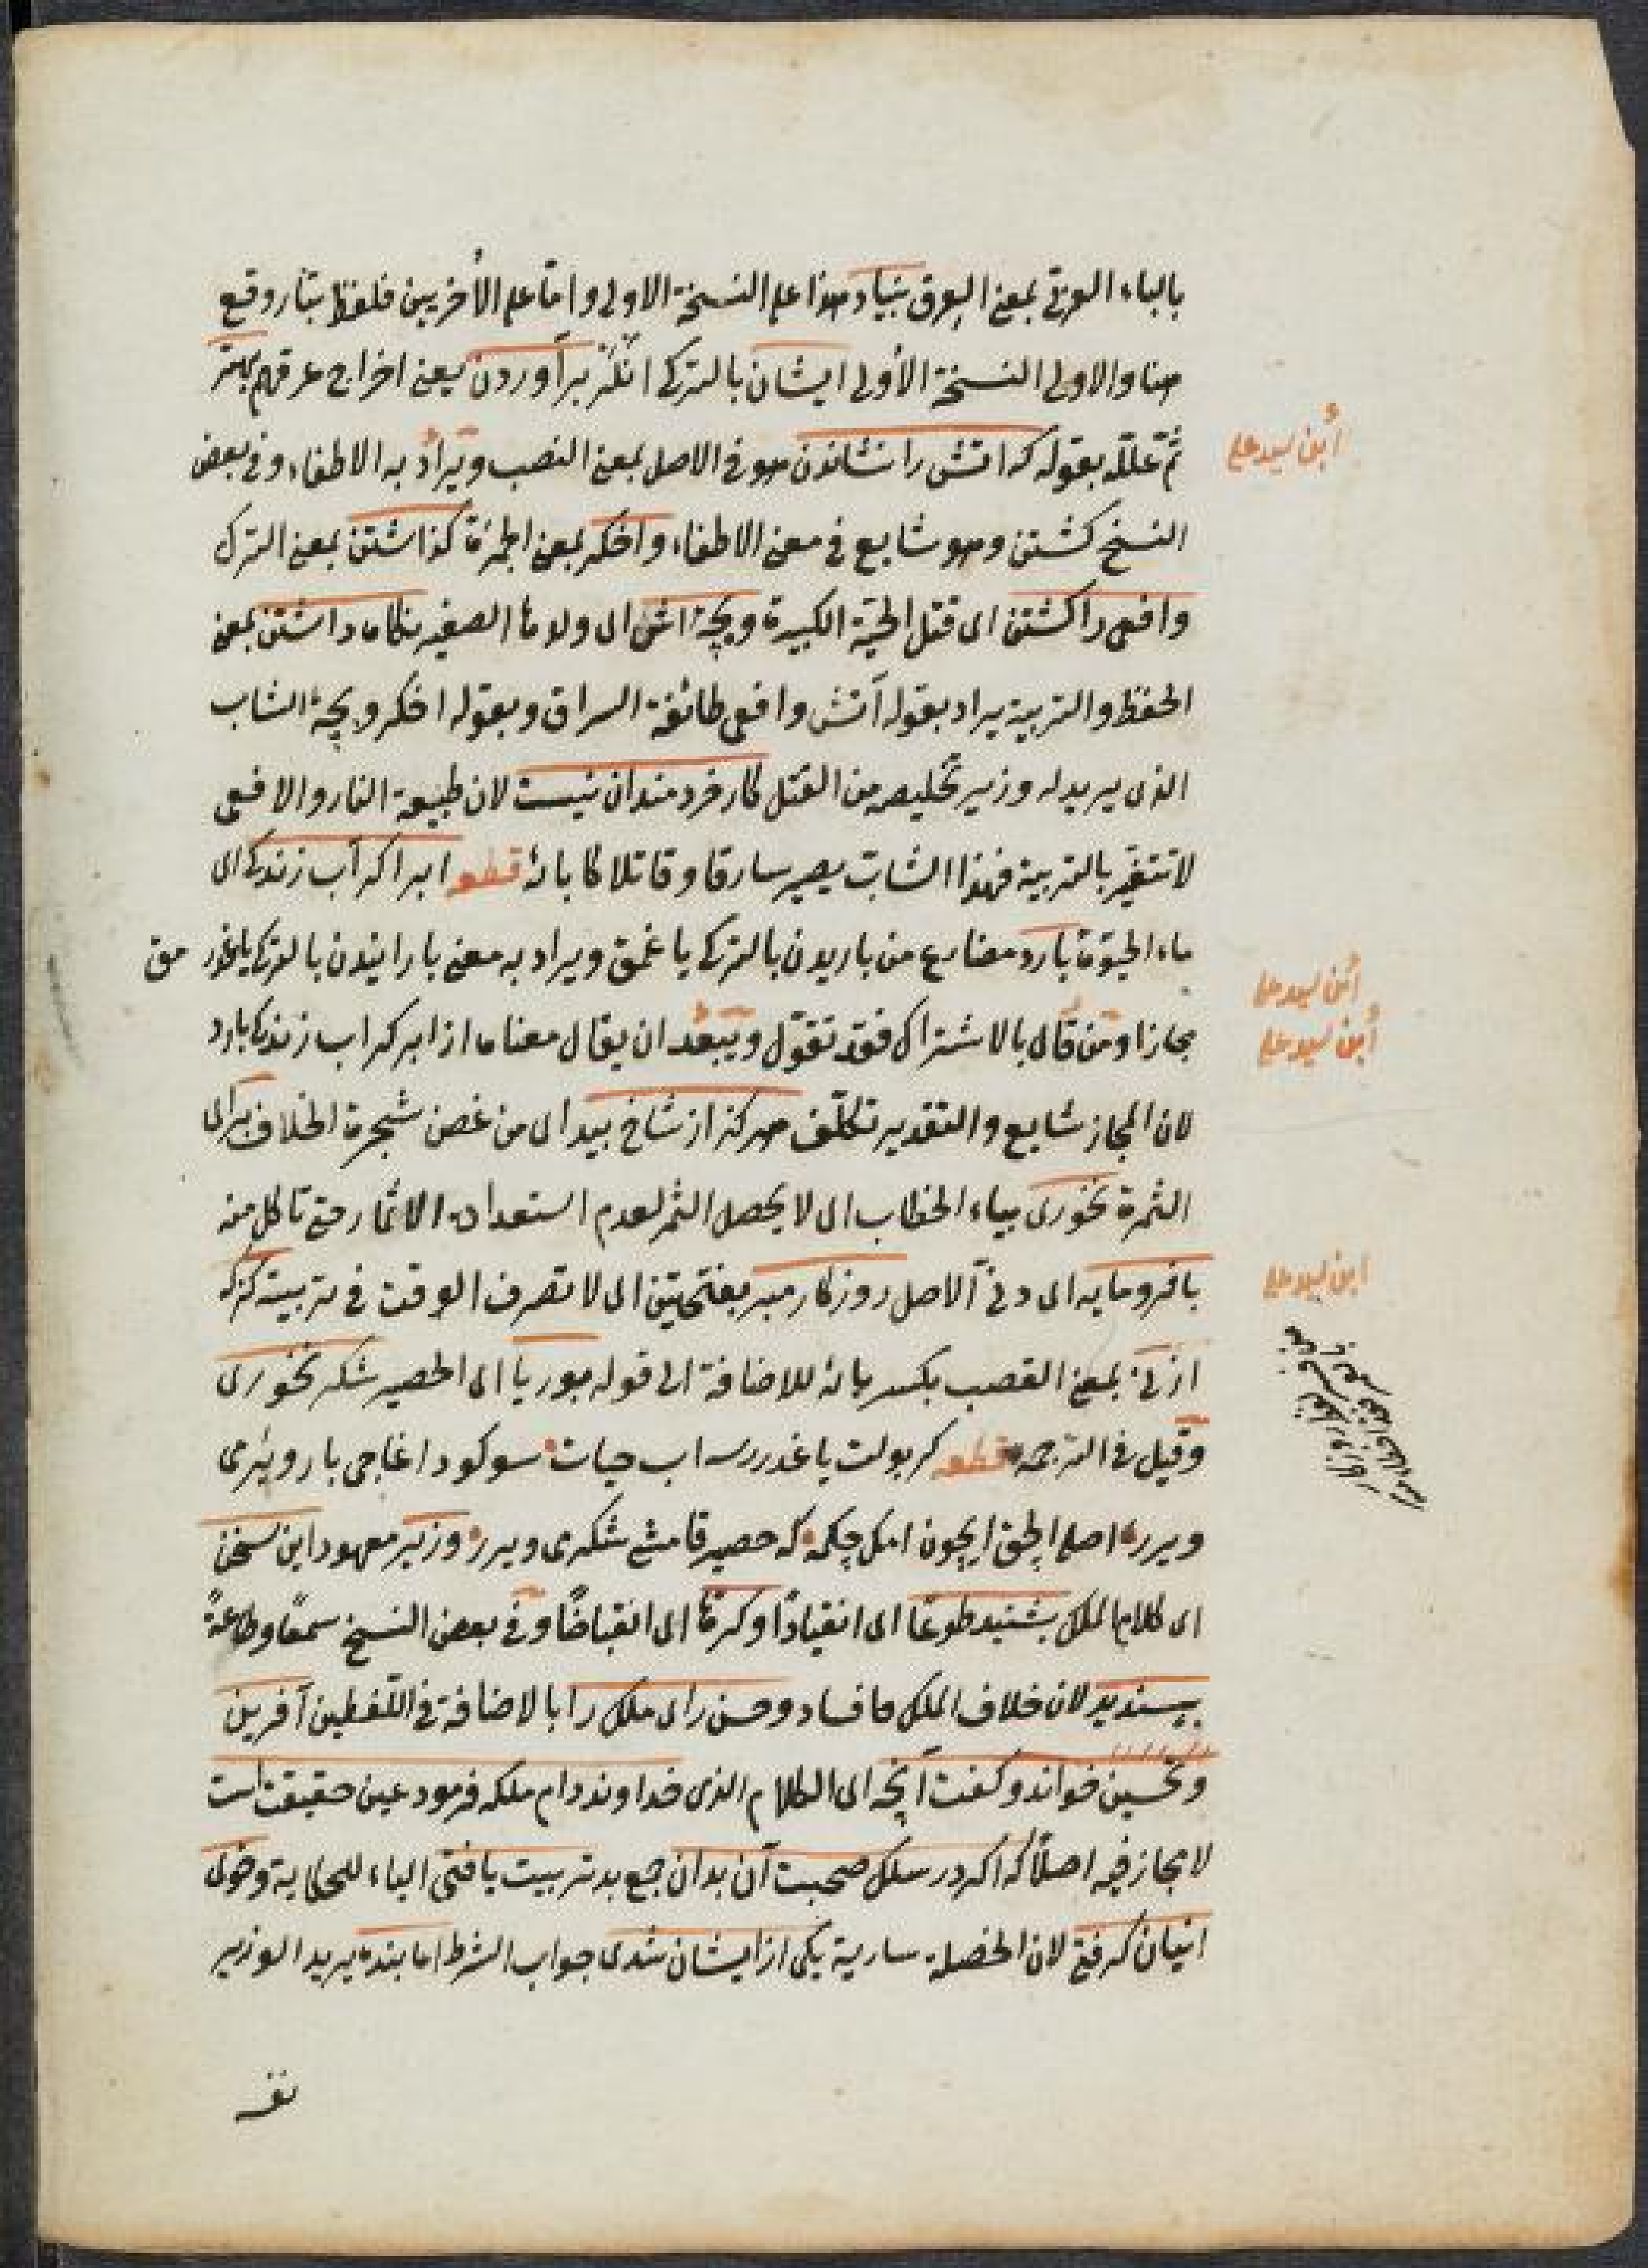 بالباء العرق بمعنى العرق بنياد هذا على النسخة الاولى واما على الأخريين فلفظ بتار وقع
هنا والاولى النسخة الأولى ايشان بالتركى انلر برآوردن يعنى اخراج عرقهم بهتر
ثم علله بقوله كه اتش را نشاندن هو فى الاصل بمعنى النصب ويراد به الاطفاء وفى بعض
النسخ كشتن وهو شايع فى معنى الاطفاء واخكر بمعنى الجمرة كذاشتن بمعنى الترك
وافعى را كشتن اى قتل الحية الكبيرة وبچه اش اى ولدها الصغير نكاه داشتن بمعنى
الحفظ والتربية يراد بقوله آتش وافعى طائفة السراق وبقوله اخكر وبچه الشاب
الذى يريد له وزير تخليصه من القتل كار خردمندان نيست لان طبيعة النار والافعى
لا تتغير بالتربية فهذا الشاب يصير سارقا وقاتلا كابائه قطعه ابر اكر آب زندكى اى
ماء الحيوة بارد مضارع من باريدن بالتركى ياغمق ويراد به معنى بارانيدن بالتركى ياغدر مق
مجازا ومن قال بالاشتراك فقد تقول ويبعد ان يقال معناه از ابر كر اب زندكى بارد
لان المجاز شايع والتقدير تكلف هركز از شاخ بيد اى من غصن شجرة الخلاف بر اى
الثمرة نخورى بياء الخطاب اى لا يحصل الثمر لعدم استعداده الاثمار حتى تاكل منه
با فرومايه اى دنى الاصل روزكار مبر بفتحتين اى لا تصرف الوقت فى تربيته كز
از نى بمعنى القصب بكسر يائه للاضافة الى قوله بوريا اى الحصير شكر نخورى
وقيل فى الترجمه قطعه كر بولت ياغدررسه اب حيات سوكود اغاجى بار ويرمى
ويرر اصلى الچق ايچون امك چكمه كه حصير قامشى شكرمى ويرر وزير معهود اين سخن
اى كلام الملك بشنيد طوعا اى انقيادًا وكرها اى انقباضًا وفى بعض النسخ سمعًا وطاعةً
بپسنديد لان خلاف الملك ما فساد وحسن راى ملك را بالاضافة فى اللفظين آفرين
وتحسين خواند وكفت آنچه اى الكلام الذى خداوند دام ملكه فرمود عين حقيقت است
لا مجاز فيه اصلاً كه اكر در سلك صحبت آن بدان جمع بد تربيت يافتى الياء للحكاية وخوى
ايشان كرفتى لان الخصلة سارية يكى از ايشان شدى جواب الشرط اما بنده يريد الوزير
ابن سيد على
ابن سيد على
ابن سيد على
ابن سيد على